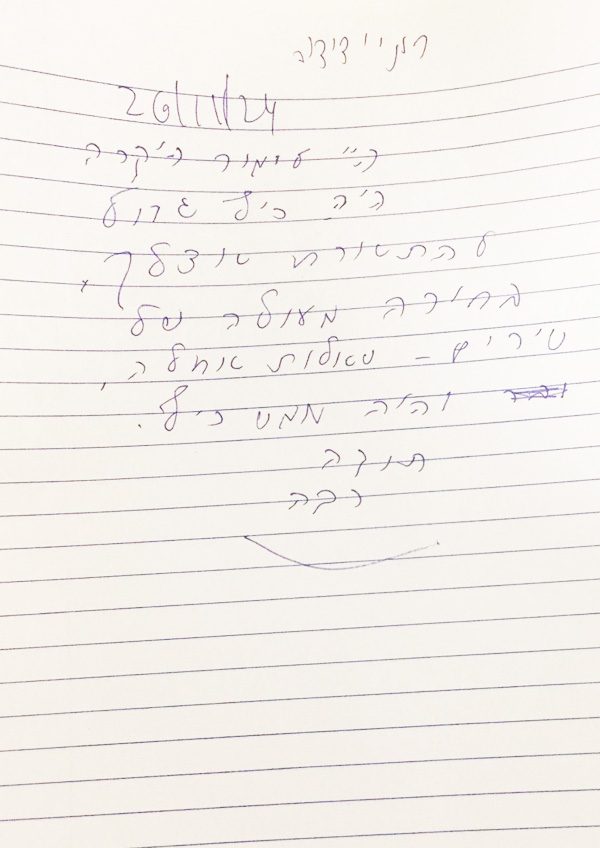 רוני ידידיה
26/11/24
היי לימור היקרה
היה כיף גדול
להתארח אצלך,
בחירה מעולה של
שירים - שאלות אחלה,
והיה ממש כיף.
תודה
רבה